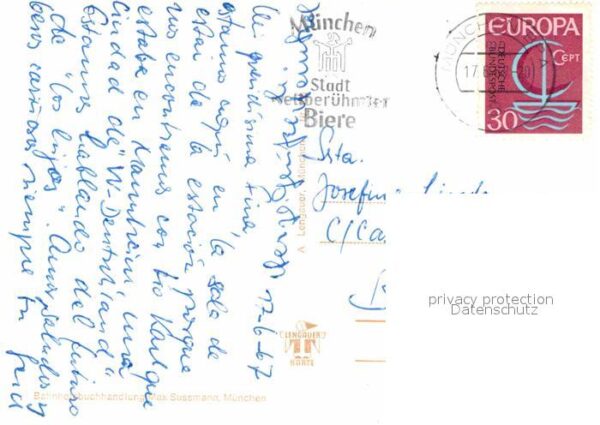 München
Stadt
weltberühmter
Biere
EUROPA
CEPT
DEUTSCHE
BUNDESPOST
30
MÜNCHEN
17.6
17-6-67
Mi queridísima Fina,
estamos aquí en la sala de
estar de la estación porque
nos encontramos con tío Karl que
estaba en Mannheim una
ciudad de "W-Deutschland"
Estamos hablando del futuro
de "los hijos". Amor, saludos y
besos cariñosos siempre tu
Srta.
Josefina
C/Ca
A. Lengauer, München
LENGAUER
KARTE
Bahnhofbuchhandlung Max Sussmann, München
privacy protection
Datenschutz